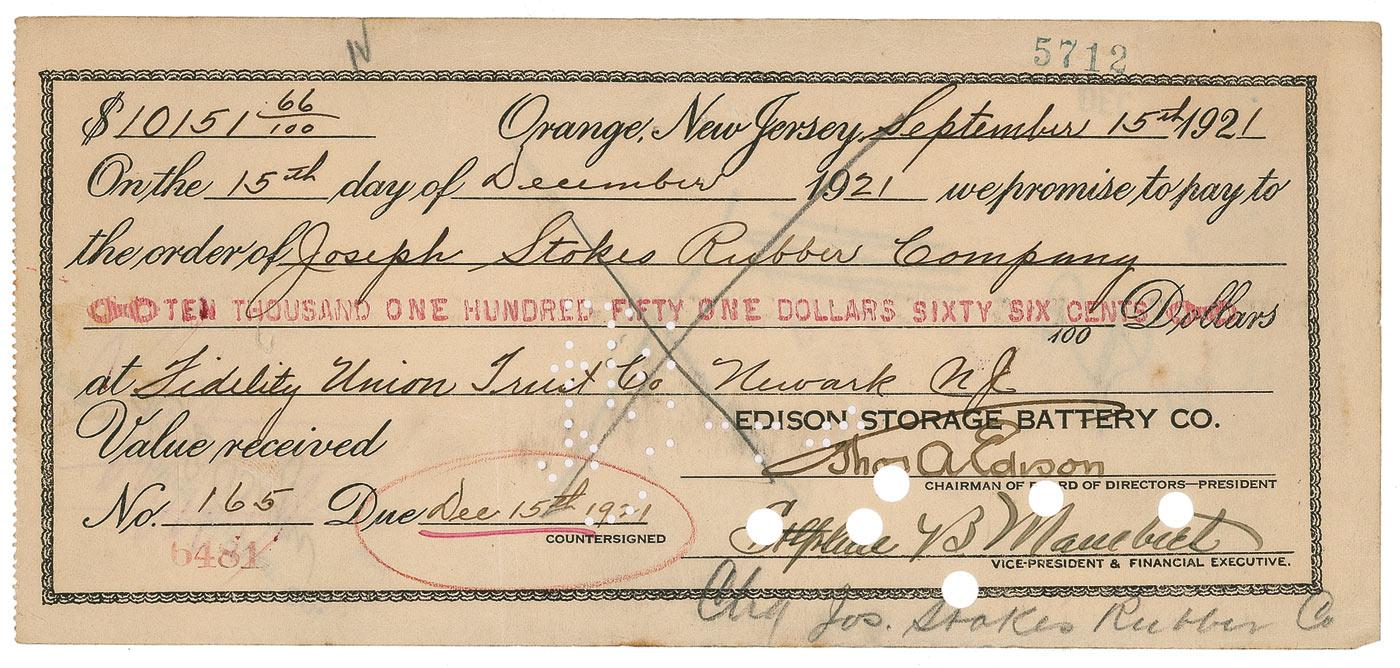 IV
5712
$10151 66/100 Orange, New Jersey, September 15th 1921
On the 15th day of December 1921 we promise to pay to
the order of Joseph Stokes Rubber Company
TEN THOUSAND ONE HUNDRED FIFTY ONE DOLLARS SIXTY SIX CENTS Dollars
100
at Fidelity Union Trust Co Newark NJ
EDISON STORAGE BATTERY CO.
Value received
Thos A Edison
CHAIRMAN OF BOARD OF DIRECTORS—PRESIDENT
No. 165 Due Dec 15th 1921
COUNTERSIGNED
VICE-PRESIDENT & FINANCIAL EXECUTIVE.
6481
Chg Jos. Stokes Rubber Co